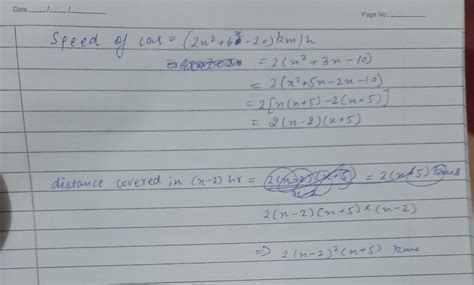 Date ___/___/___
Page No.:
Speed of car = (2x²+6x-20) km/h
= 2(x²+3x-10)
= 2(x²+5x-2x-10)
= 2[x(x+5)-2(x+5)]
= 2(x-2)(x+5)
distance covered in (x-2) hr = 2(x-2)(x+5) / x-2 = 2(x+5) kms
2(x-2)(x+5)×(x-2)
⇒ 2(x-2)²(x+5) kms